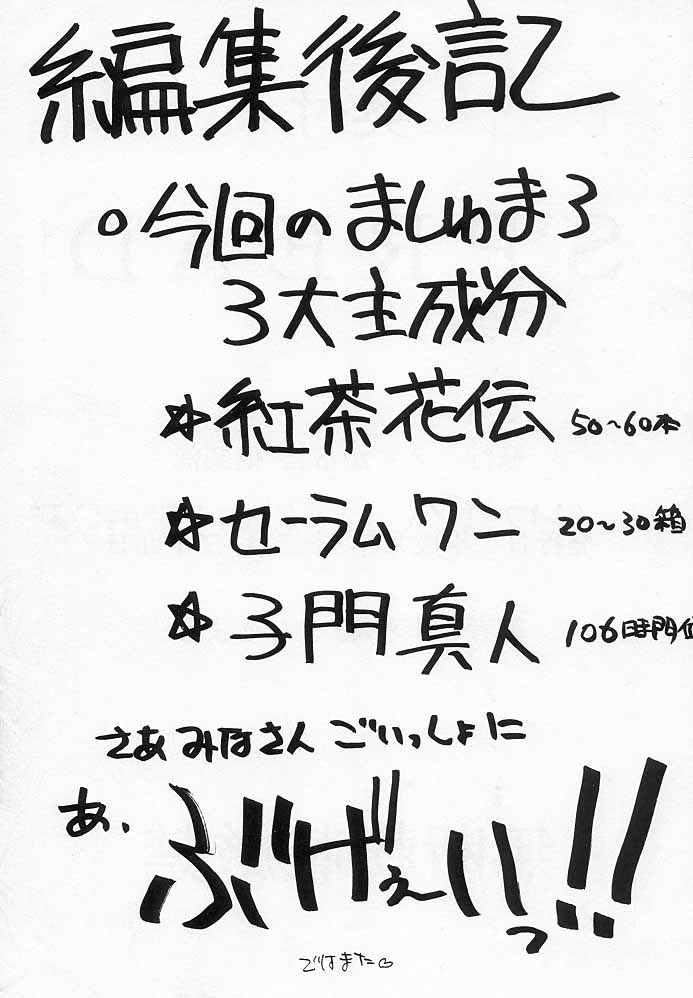 編集後記
○今回のましゅまろ
3大主成分
☆紅茶花伝 50~60本
☆セーラムワン 20~30箱
☆子門真人 106時間位
さあみなさんごいっしょに
あ、ぶげぇいっ!!
ではまた♡